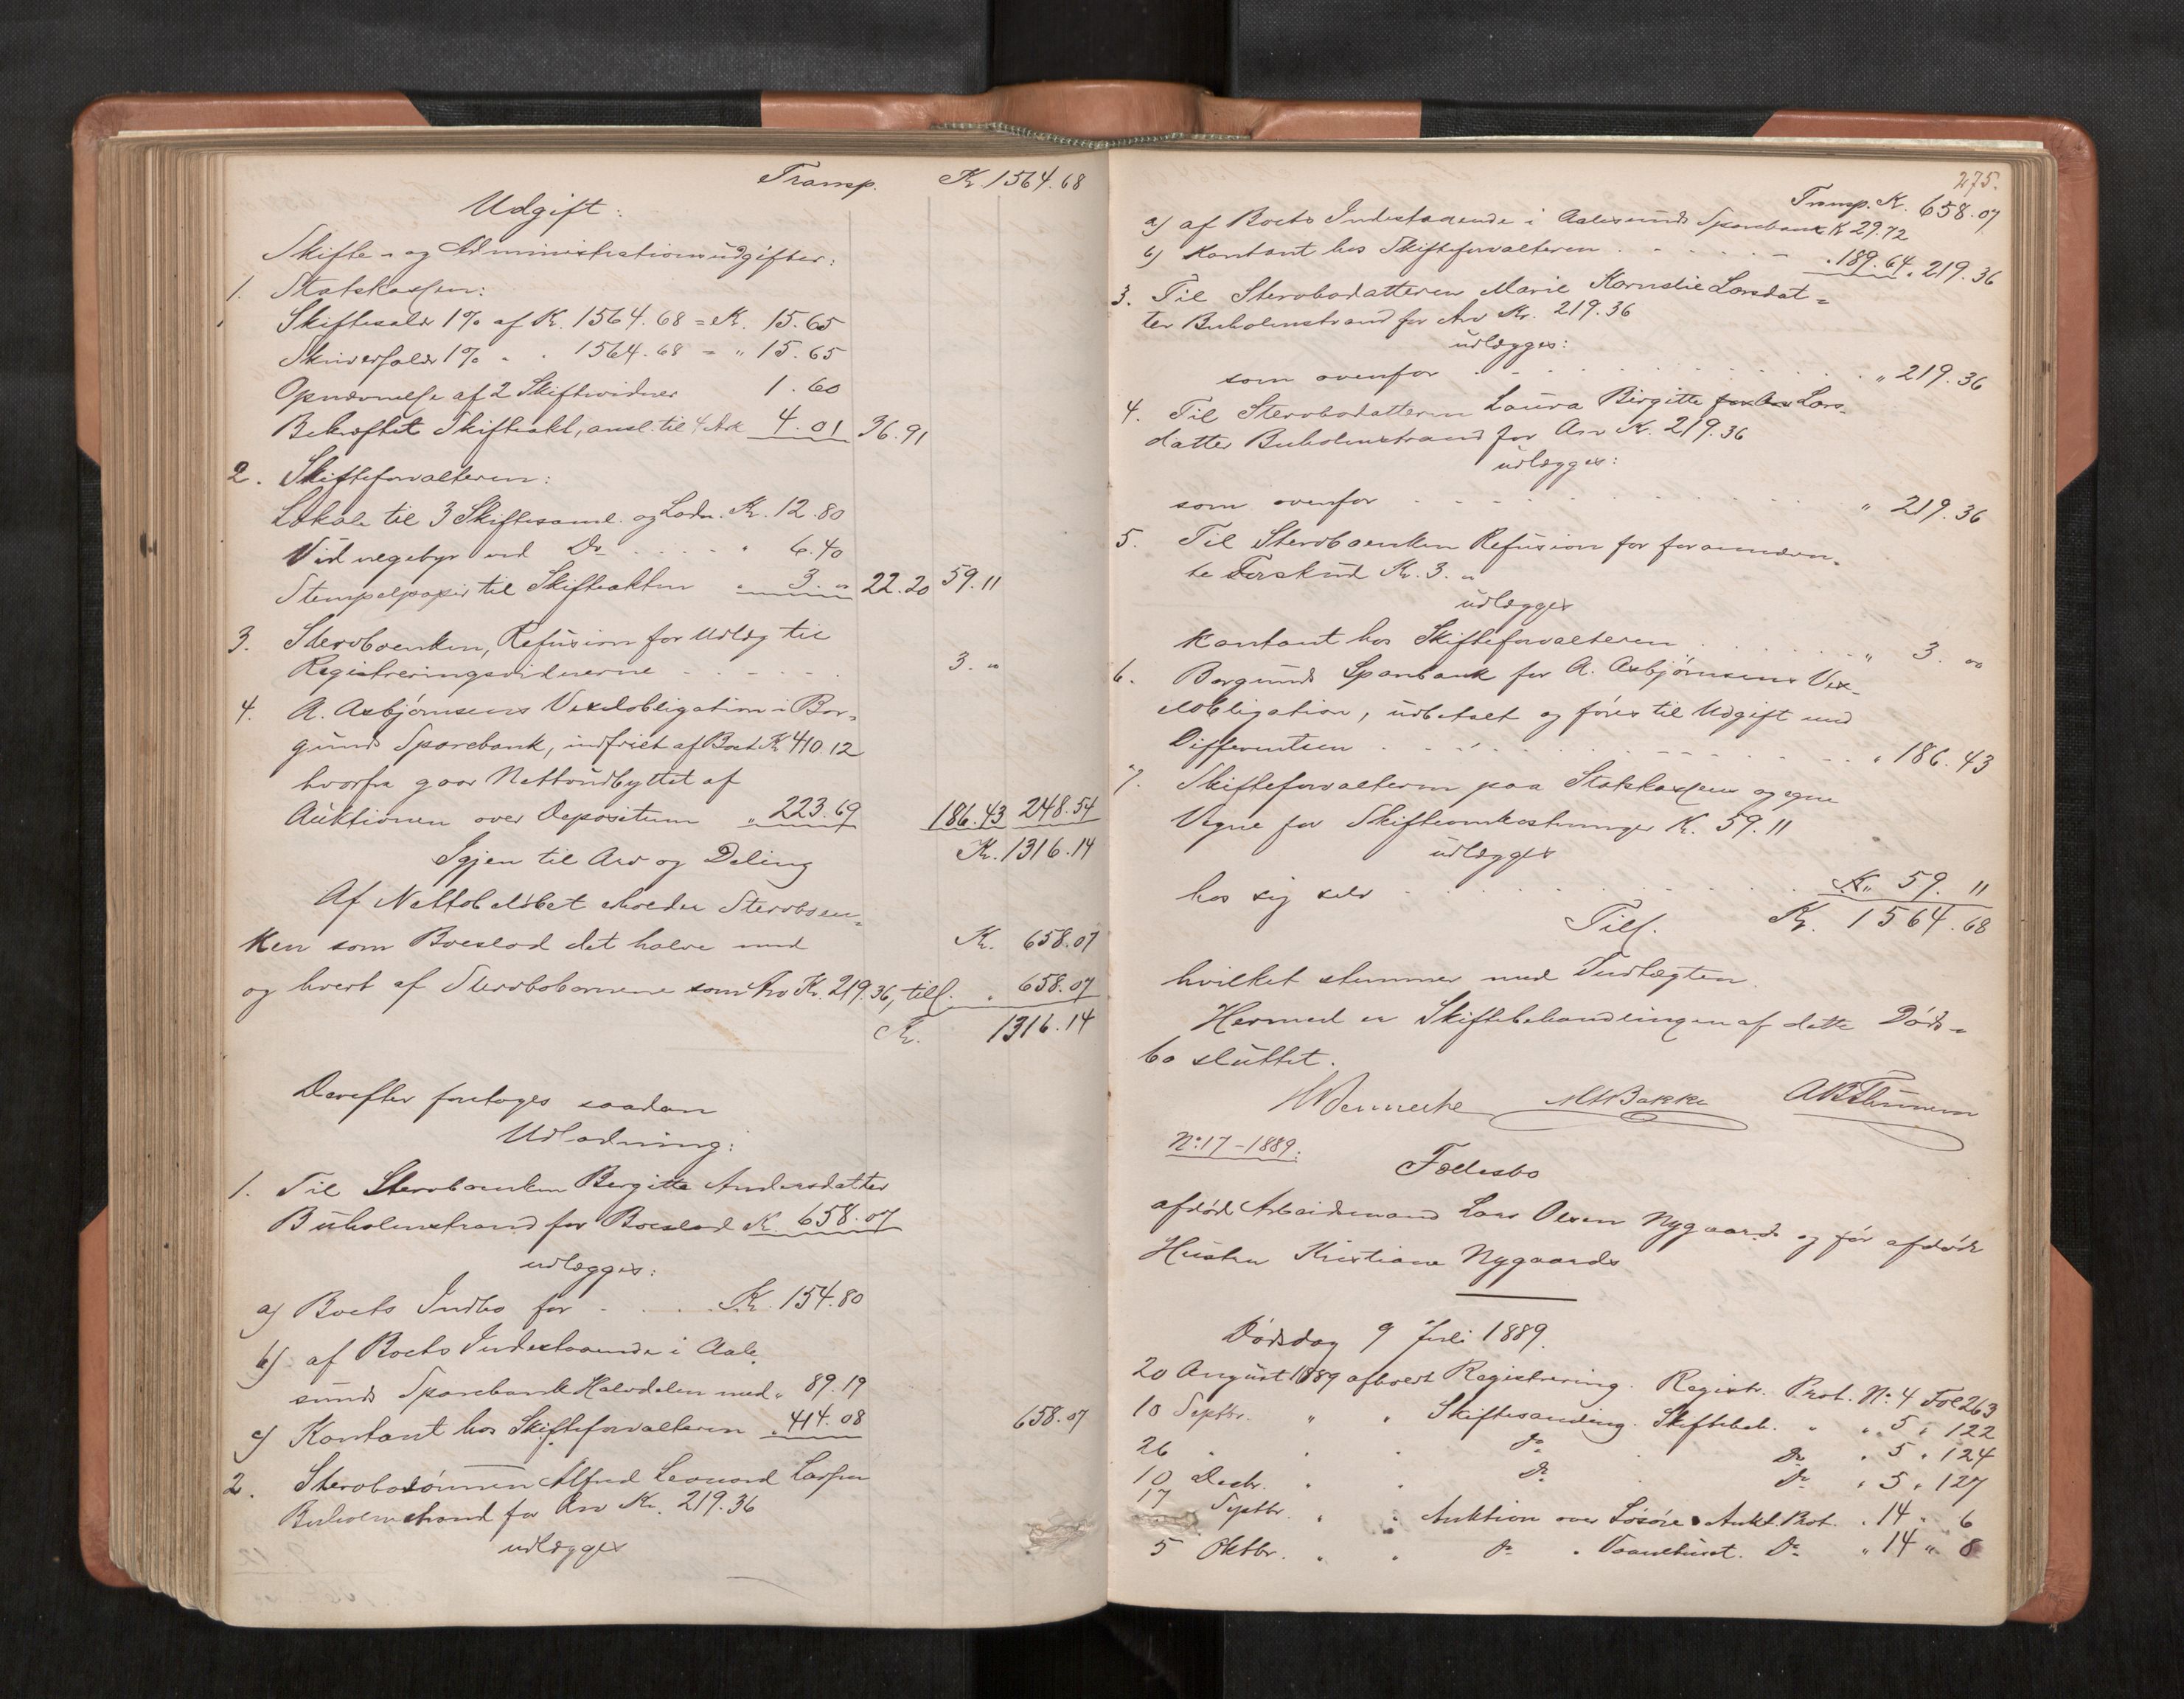 Transp. Kr. 1564.68
Udgift:
Skifte- og Administrationsudgifter:
1. Statskassen:
Skiftesaler 1% af Kr. 1564.68 = Kr. 15.65
Skriversaler 1% " " 1564.68 = " 15.65
Opnævnelse af 2 Skiftevidner 1.60
Bekræftet Skifteakt, ansl. til 4 Ark 4.01 36.91
2. Skifteforvalteren:
Lokale til 3 Skiftesaml. og Lodn. Kr. 12.80
Vidnegebyr ved Do . . . . " 6.40
Stempelpapir til Skifteakten " 3. " 22.20 59.11
3. Stervboenken, Refusion for Udlæg til
Registreringsvidnerne - - - - - . 3. "
4. A. Asbjørnsens Vexelobligation i Bor-
gunds Sparebank, indfriet af Boet Kr 410.12
hvorfra gaar Nettoudbyttet af
Auktionen over Depositum " 223.69 186.43 248.54
Igjen til Arv og Deling Kr. 1316.14
Af Nettobeløbet tilkommer Stervboen-
ken som Boeslod det halve med Kr. 658.07
og hvert af Stervbobørnene som Arv Kr. 219.36, tils. " 658.07
Kr. 1316.14
Derefter foretoges saadan
Udlodning:
1. Til Stervboenken Bergitte Andersdatter
Buholmstrand for Boeslod Kr. 658.07
udlægges:
a) Boets Indbo for - . . . Kr. 154.80
b) af Boets Indestaaende i Aale-
sunds Sparebank Halvdelen med " 89.19
c) Kontant hos Skifteforvalteren " 414.08 658.07
2. Stervbosønnen Alfred Leonard Larsen
Buholmstrand for Arv Kr. 219.36
udlægges
275.
Transp. Kr. 658.07
a) af Boets Indestaaende i Aalesunds Sparebank Kr 29.72
b) Kontant hos Skifteforvalteren . - - - - - " 189.64 " 219.36
3. Til Stervbodatteren Marie Kornelie Larsdat-
ter Buholmstrand for Arv Kr. 219.36
udlægges:
som ovenfor . - . . . . . . . " 219.36
4. Til Stervbodatteren Laura Birgitte for Arv Lars-
datter Buholmstrand for Arv Kr. 219.36
udlægges:
som ovenfor . - - - . . . . . " 219.36
5. Til Stervboenken Refusion for foranævn-
te Forskud Kr. 3. "
udlægges
Kontant hos Skifteforvalteren . . . . . " 3. "
6. Borgunds Sparebank for A. Asbjørnsens Vex-
elobligation, udbetalt og føres til Udgift med
Differentsen . . . . . . . . " 186.43
7. Skifteforvalteren paa Statskassens og egne
Vegne for Skifteomkostninger Kr. 59.11
udlægges
hos sig selv . . . . . . . . Kr. 59.11
Tils. Kr. 1564.68
hvilket stemmer med Indtægten.
Hermed er Skiftebehandlingen af dette Døds-
bo sluttet.
No. 17 - 1889.
Fællesbo
afdøde Arbeidsmand Lars Olsen Nygaards og før afdøde
Hustru Kristiane Nygaards
Dødsdag 9 Juli 1889.
20 August 1889 afholdt Registrering. Registr. Prot. No. 4 Fol 263
10 Septbr. " " Skiftesamling. Skiftebeh. " " 5 " 122
26 " " " Do " Do " 5 " 124
10 Decbr. " " Do Do " 5 " 127
17 Septbr. " " Auktion over Løsøre Aukt. Prot. " 14 " 6
5 Oktbr. " " Do " Vaanehuset. Do " 14 " 8